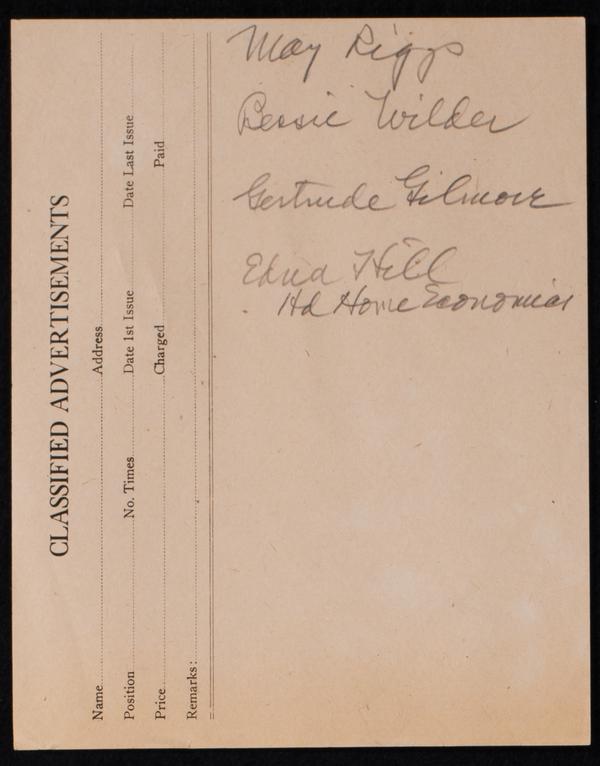 CLASSIFIED ADVERTISEMENTS
Name Address
Position No. Times Date 1st Issue Date Last Issue
Price Charged Paid
Remarks:
May Riggs
Bessie Wilder
Gertrude Gilmore
Edna Hill
Hd Home Economics